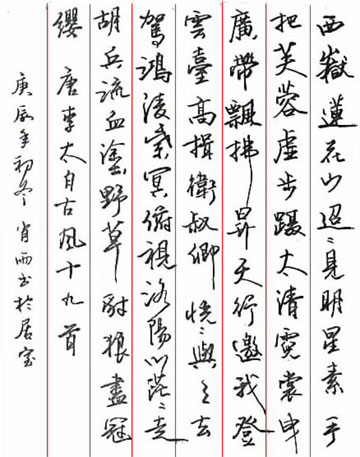 西嶽蓮花山迢〻見明星素手
把芙蓉虛步躡太清霓裳曳
廣帶飄拂昇天行邀我登
雲臺高揖衛叔卿恍〻與之去
駕鴻淩紫冥俯視洛陽川茫〻走
胡兵流血塗野草豺狼盡冠
纓 唐李太白古風十九首
庚辰年初冬 肖雨书於居室